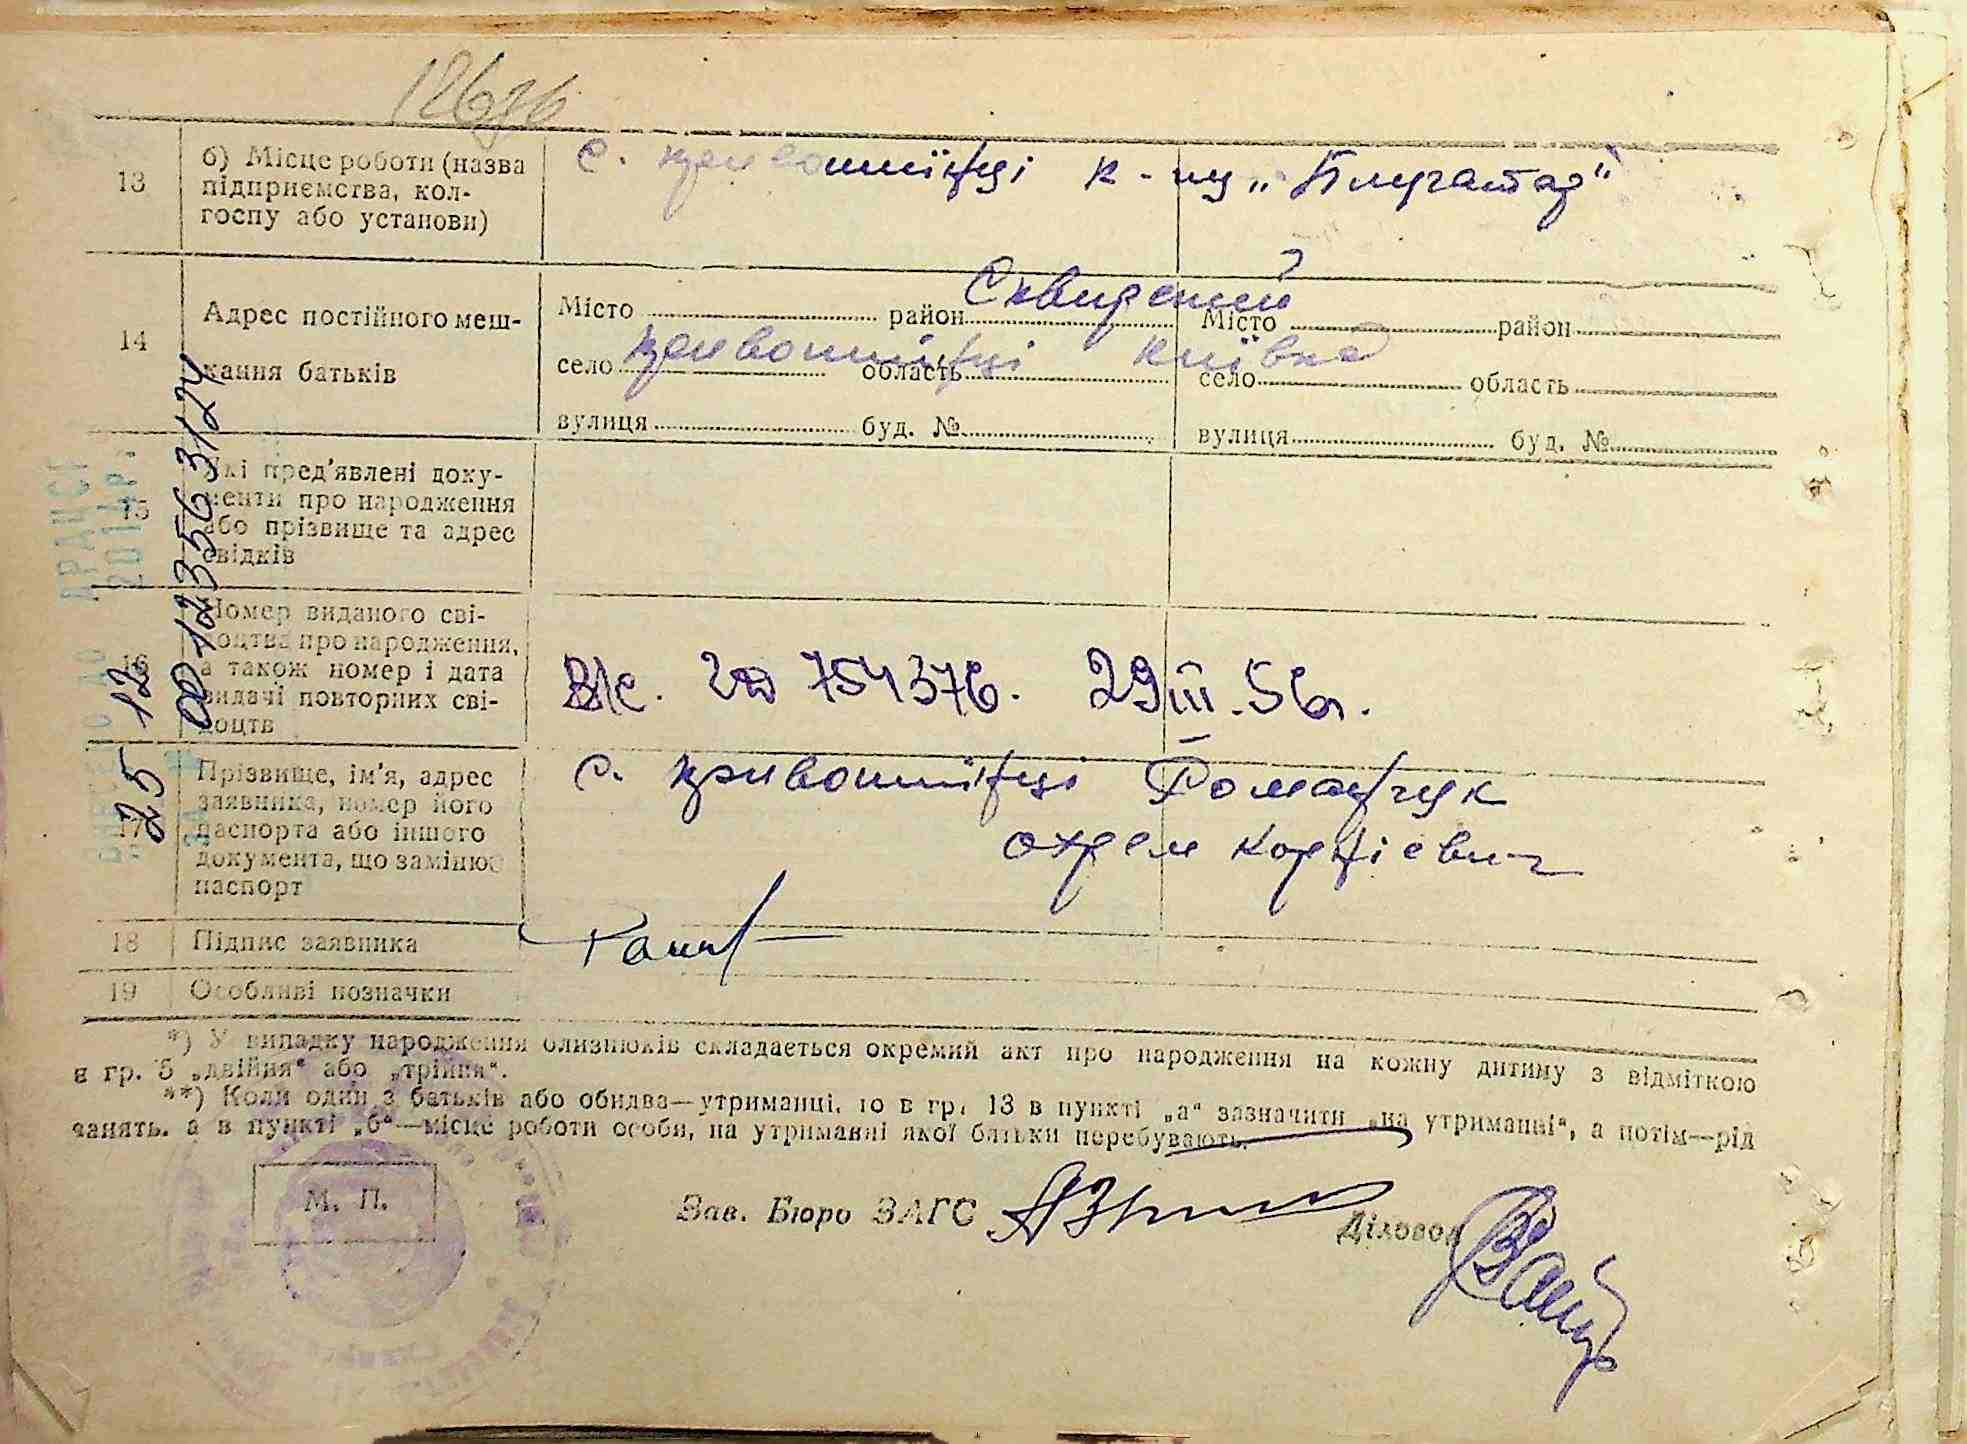 13 б) Місце роботи (назва
підприємства, кол-
госпу або установи)
с. Кривошиїнці к-пу „Плугатар“
14 Адрес постійного меш-
кання батьків
Місто район Сквирський Місто район
село Кривошиїнці область Київська село область
вулиця буд. № вулиця буд. №
15 Які пред'явлені доку-
менти про народження
або прізвище та адрес
свідків
16 Номер виданого сві-
доцтва про народження,
а також номер і дата
видачі повторних сві-
доцтв
754376. 29 III. 56г.
17 Прізвище, ім'я, адрес
заявника, номер його
паспорта або іншого
документа, що замінює
паспорт
с. Кривошиїнці Романчук
Охрем Корнієвич
18 Підпис заявника
19 Особливі позначки
*) У випадку народження близнюків складається окремий акт про народження на кожну дитину з відміткою
в гр. 5 „двійня“ або „трійня“.
**) Коли один з батьків або обидва—утриманці, то в гр. 13 в пункті „а“ зазначити „на утриманні“, а потім—рід
занять, а в пункті „б“—місце роботи особи, на утриманні якої батьки перебувають.
М. П.
Зав. Бюро ЗАГС Діловод
ДРАЦСГ
2014р.
25 12
00123563124